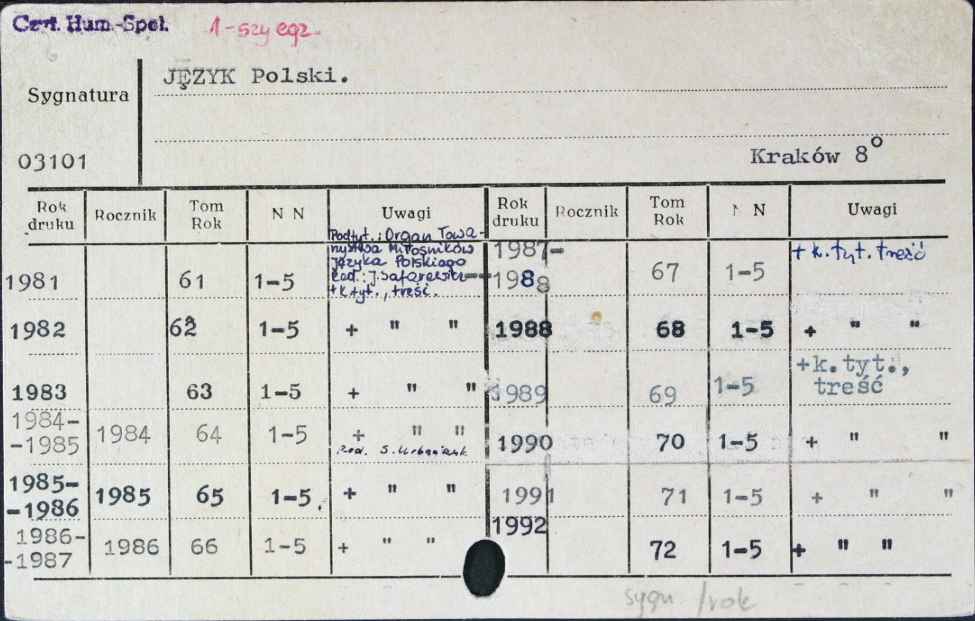 Czyt. Hum.-Społ. 1-szy egz.
JĘZYK Polski.
Sygnatura
03101
Kraków 8°
Rok druku Rocznik Tom Rok N N Uwagi Rok druku Rocznik Tom Rok N N Uwagi
Podtyt.: Organ Towa-
rzystwa Miłośników
Języka Polskiego
Red.: J. Safarewicz
+ k. tyt., treść.
1981 61 1-5
1987-
1988 67 1-5 + k. tyt. treść
1982 62 1-5 + " " 1988 68 1-5 + " "
1983 63 1-5 + " " 1989 69 1-5 + k. tyt.,
treść
1984-
-1985 1984 64 1-5 + " "
Red. S. Urbańczyk
1990 70 1-5 + " "
1985-
-1986 1985 65 1-5 + " " 1991 71 1-5 + " "
1986-
-1987 1986 66 1-5 + " " 1992 72 1-5 + " "
sygn /rok